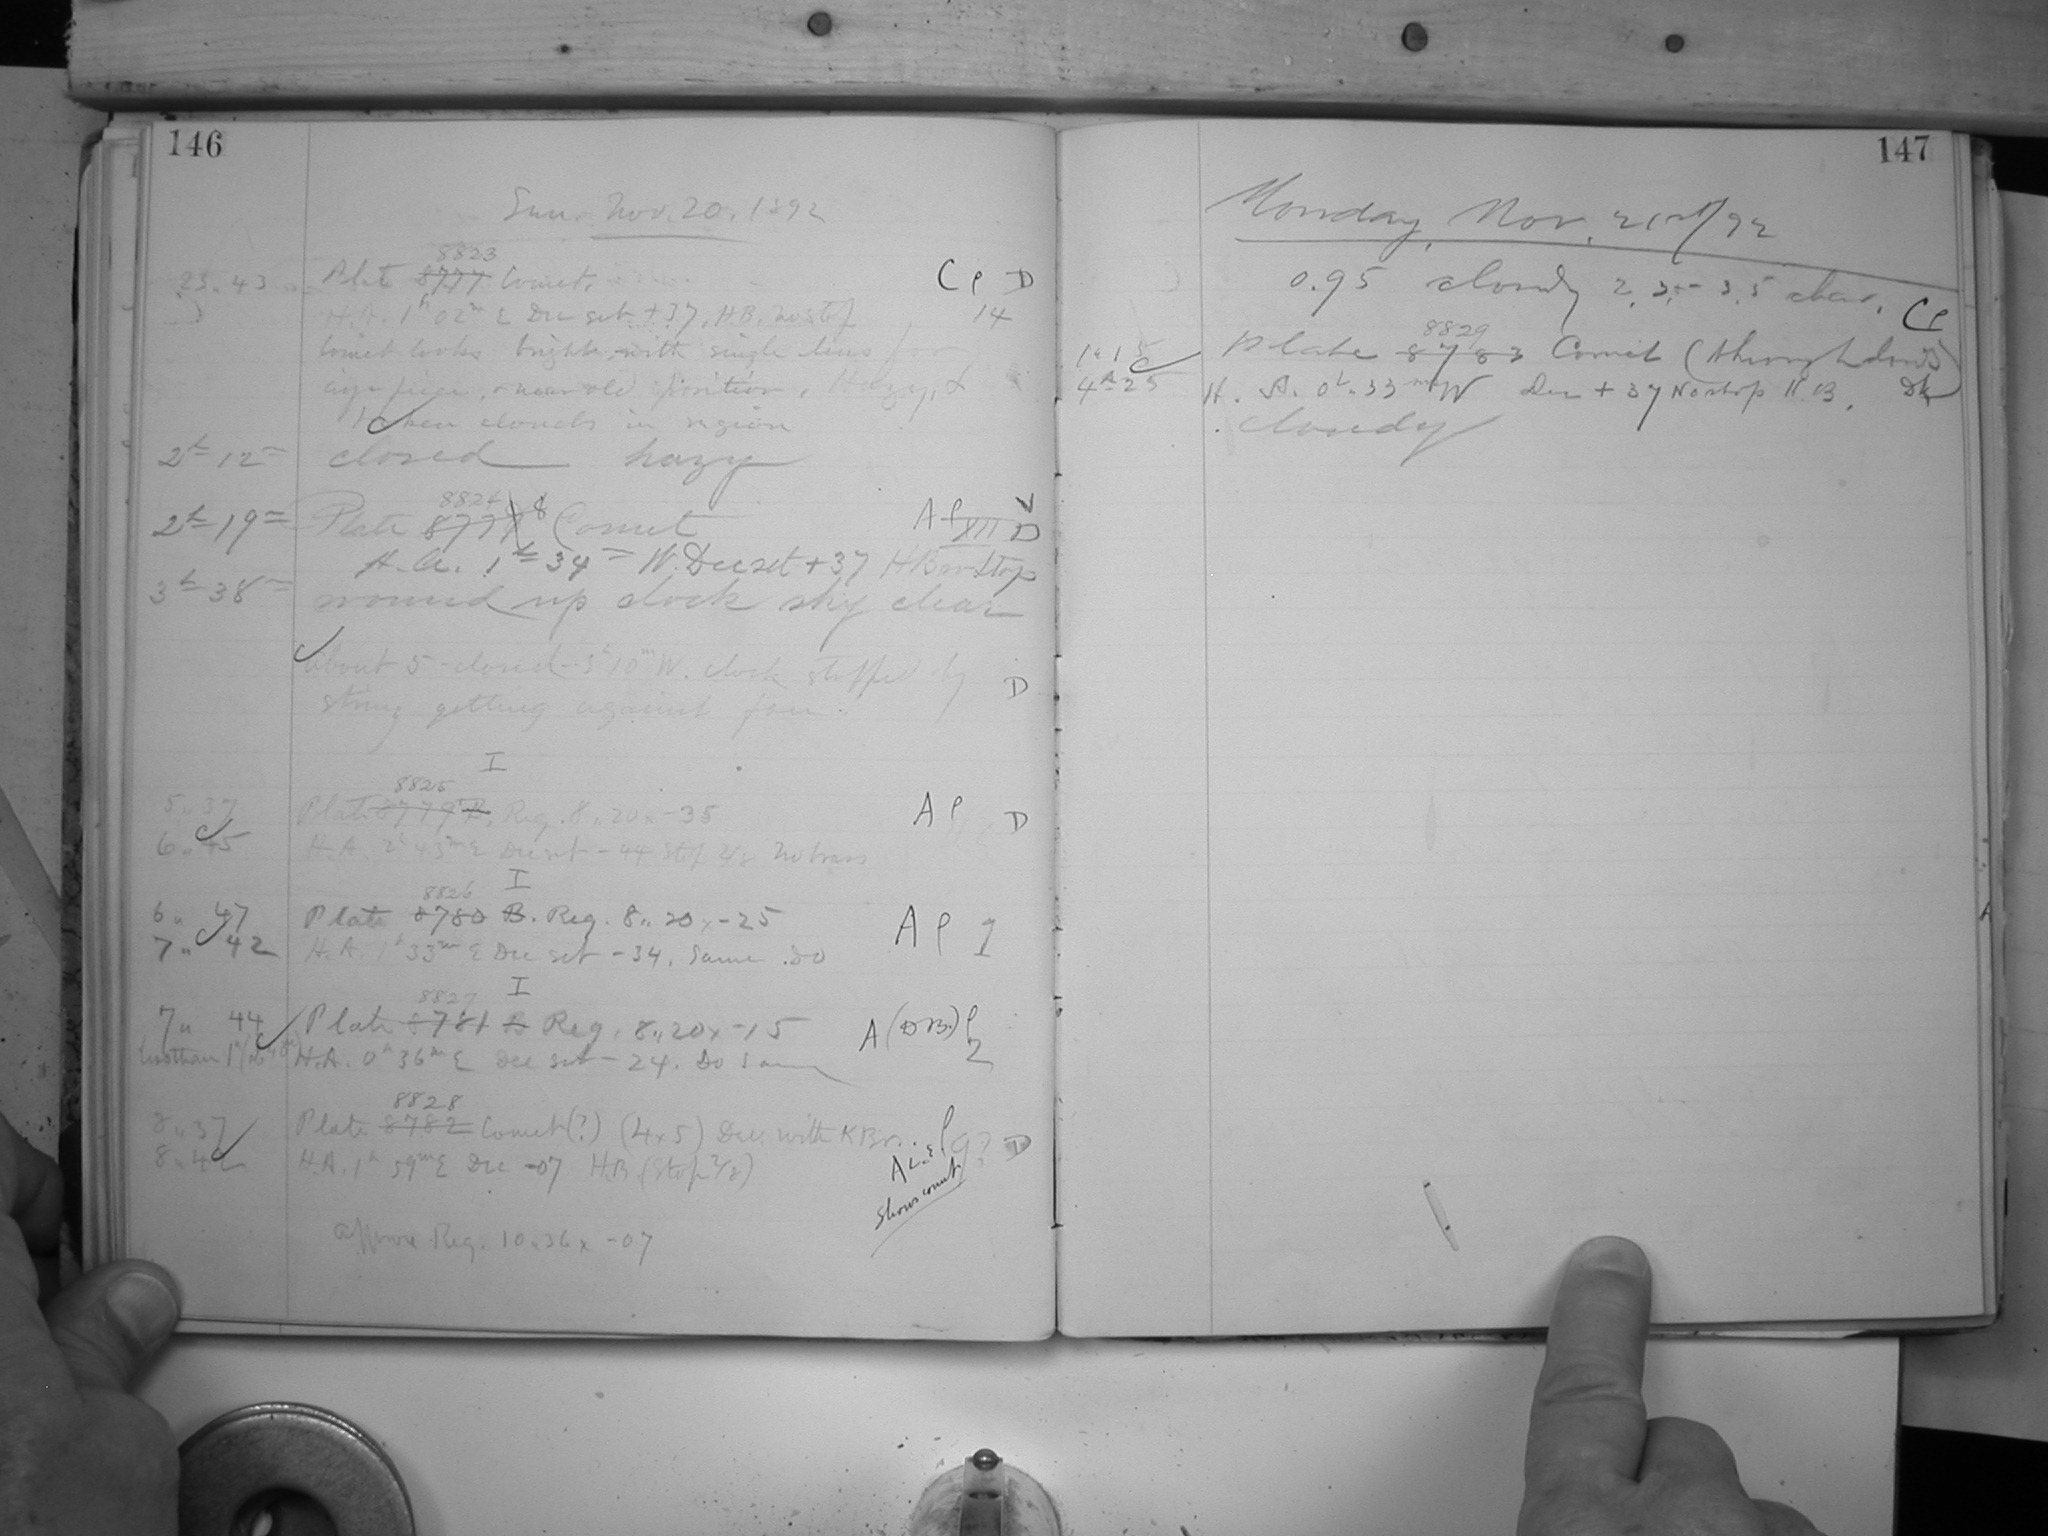 146
Sun. Nov. 20, 1892
8823
23 43 Plate 8777 Comet. C P D
H.A. 1h 02m E Dec set +37, H.B. no stop 14
Comet looks brighter with single lens for
eye piece, near old position. Hazy, &
when clouds in region
2h 12m closed hazy
8824
2h 19m Plate 8778 Comet A P XIII D
H.A. 1h 34m W. Dec set +37 H B no stop
3h 38m wound up clock sky clear
about 5 closed - 3h 10m W. clock stopped by D
string getting against
I
8825
5h 37 Plate 8779 B. Reg. 8h 20 x -35 A P D
6h 45 H.A. 2h 43m E Dec set -44 Stop 2/8 No trans
I
8826
6h 47 Plate 8780 B. Reg. 8h 20 x -25 A P 1
7h 42 H.A. 1h 33m E Dec set -34. Same do
I
8827
7h 44 Plate 8781 B Reg. 8h 20 x -15 A (DB) P 2
Less than 1h H.A. 0h 36m E Dec set -24. Do Same
8828
8h 37 Plate 8782 Comet (?) (4x5) Dev. with K Br. D
8h 4 H.A. 1h 59m E Dec -07 H.B. (Stop 2/8) A
Shows comet
Reg. 10h 36 x -07
147
Monday, Nov. 21st/92
0.95 cloudy 2, 3, - 3.5 clear. C P
8829
1h 15 Plate 8783 Comet (through clouds)
4h 25 H. A. 0h 33m W Dec +37 No stop H B.
cloudy